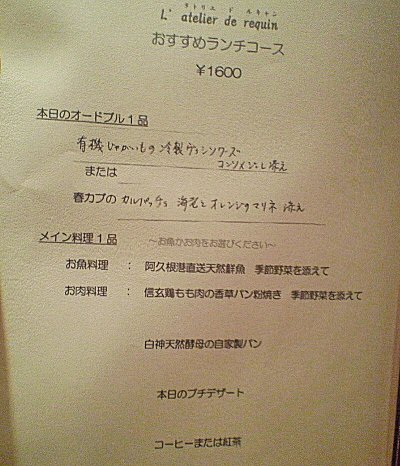 ラトリエ ド ルキャン
L' atelier de requin
おすすめランチコース
￥1600
本日のオードブル1品
有機じゃがいもの 冷製ヴィシソワーズ
コンソメジュレ添え
または
春カブの カルパッチョ 海老とオレンジのマリネ 添え
メイン料理1品 ～お魚かお肉をお選びください～
お魚料理 ： 阿久根港直送天然鮮魚 季節野菜を添えて
お肉料理 ： 信玄鶏もも肉の香草パン粉焼き 季節野菜を添えて
白神天然酵母の自家製パン
本日のプチデザート
コーヒーまたは紅茶